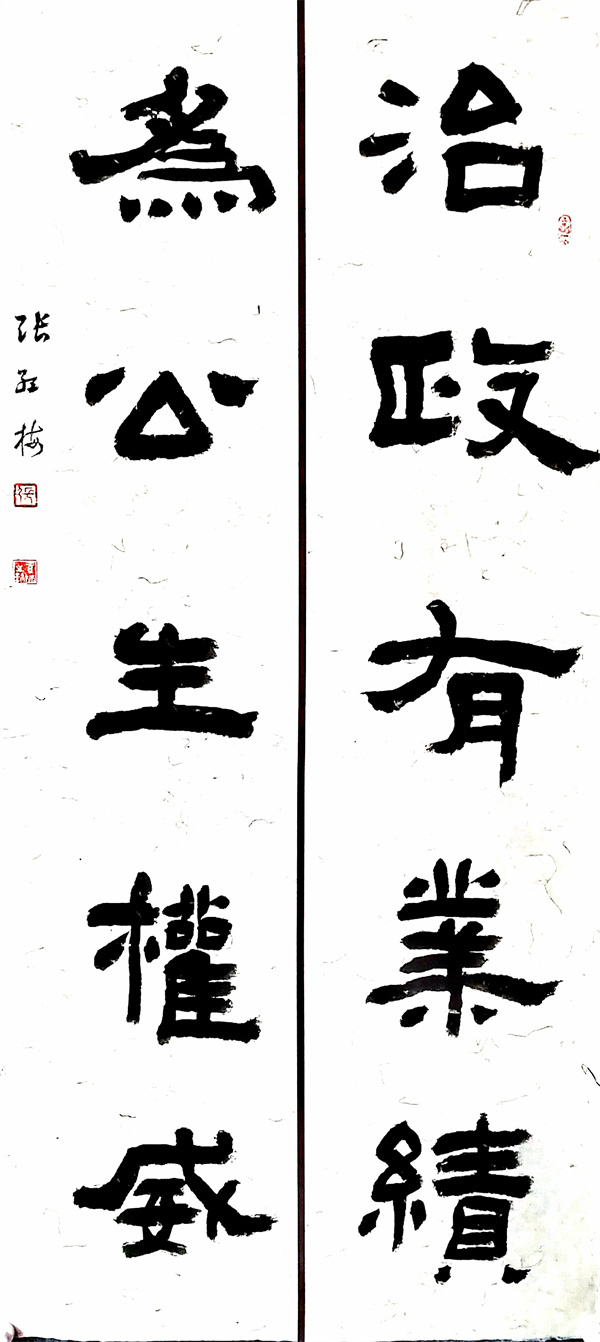 治政有業績
為公生權威
張
梅